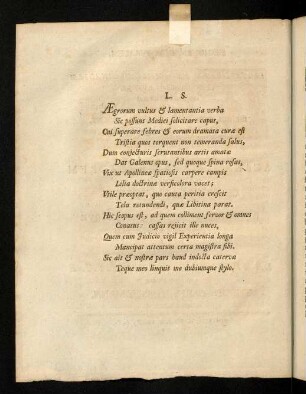 L. S.
Ægrorum vultus & lamentantia verba
Sic possunt Medici solicitare caput,
Cui superare febres & eorum dramata curæ est
Tristia quos torquent non veneranda salus,
Dum conjecturis scrutantibus artis amata
Dat Galenus opus, sed quoque spina rosas,
Vix ut Apollineæ spatiosis carpere campis
Lilia doctrinæ versicolora vacet;
Utile præque, quo cauta peritia crescit
Tela retundendi, quæ Libitina parat.
Hic scopus est, ad quem collimans fervor & omnes
Conatus: cassas rejicis ille nuces,
Quem cum Judicio vigil Experientia longa
Mancipat attentum certa magistra sibi.
Sic ait & nostræ pars haud indocta caterva
Teque mei linquit me dubiumque stylo.